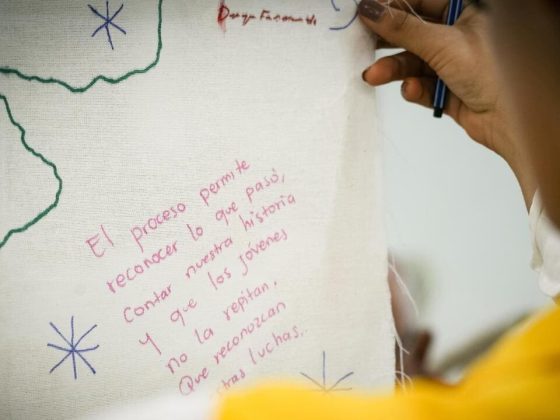 El proceso permite
reconocer lo que pasó,
Contar nuestra historia
Y que los jóvenes
no la repitan.
Que reconozcan
luchas..